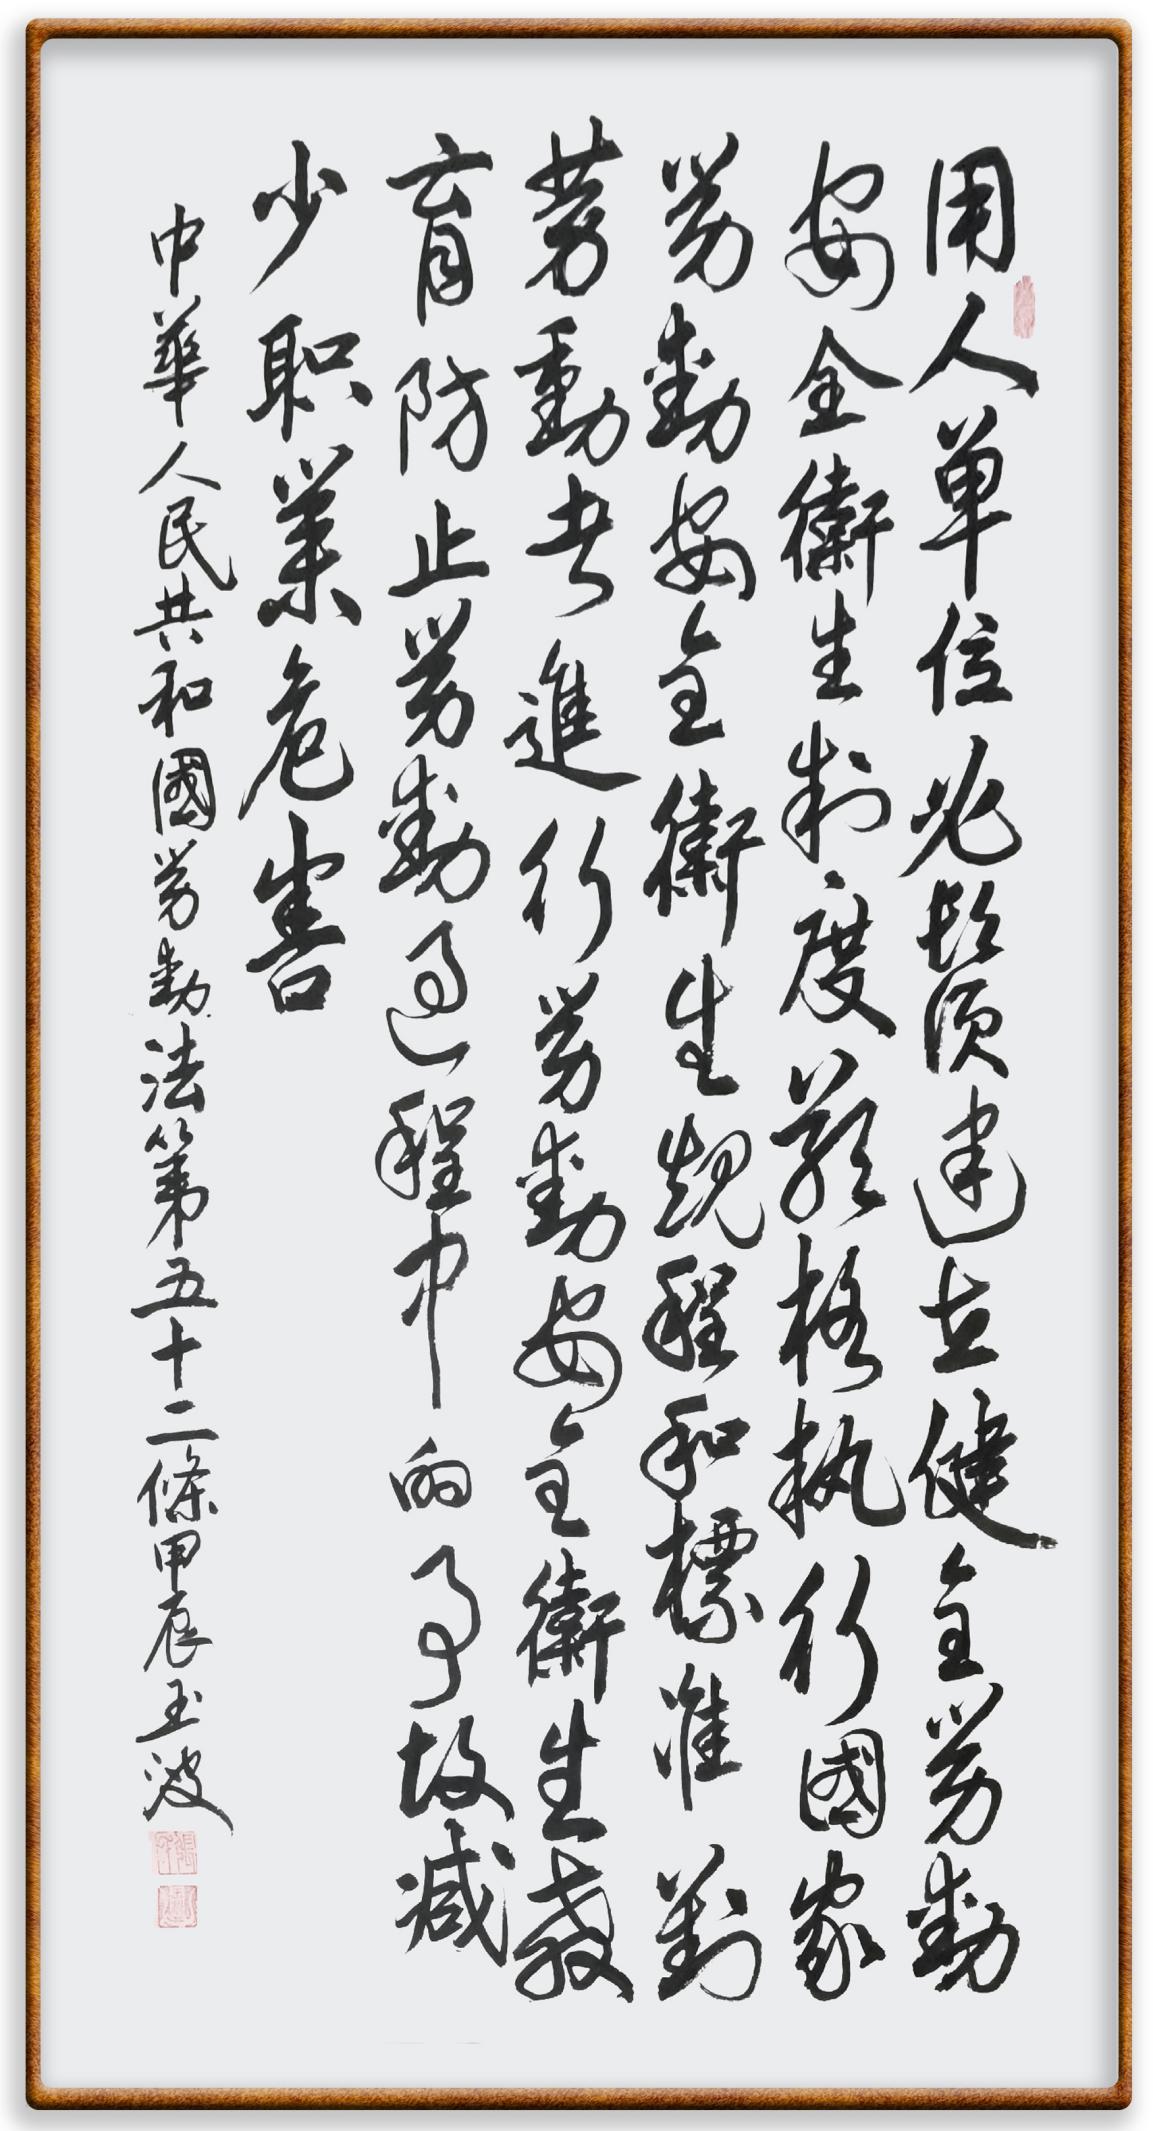 用人单位必須建立健全勞動
安全衛生制度嚴格執行國家
勞動安全衛生規程和標准對
勞動者進行勞動安全衛生教
育防止勞動過程中的事故減
少职業危害
中華人民共和國勞動法第五十二條甲辰玉波